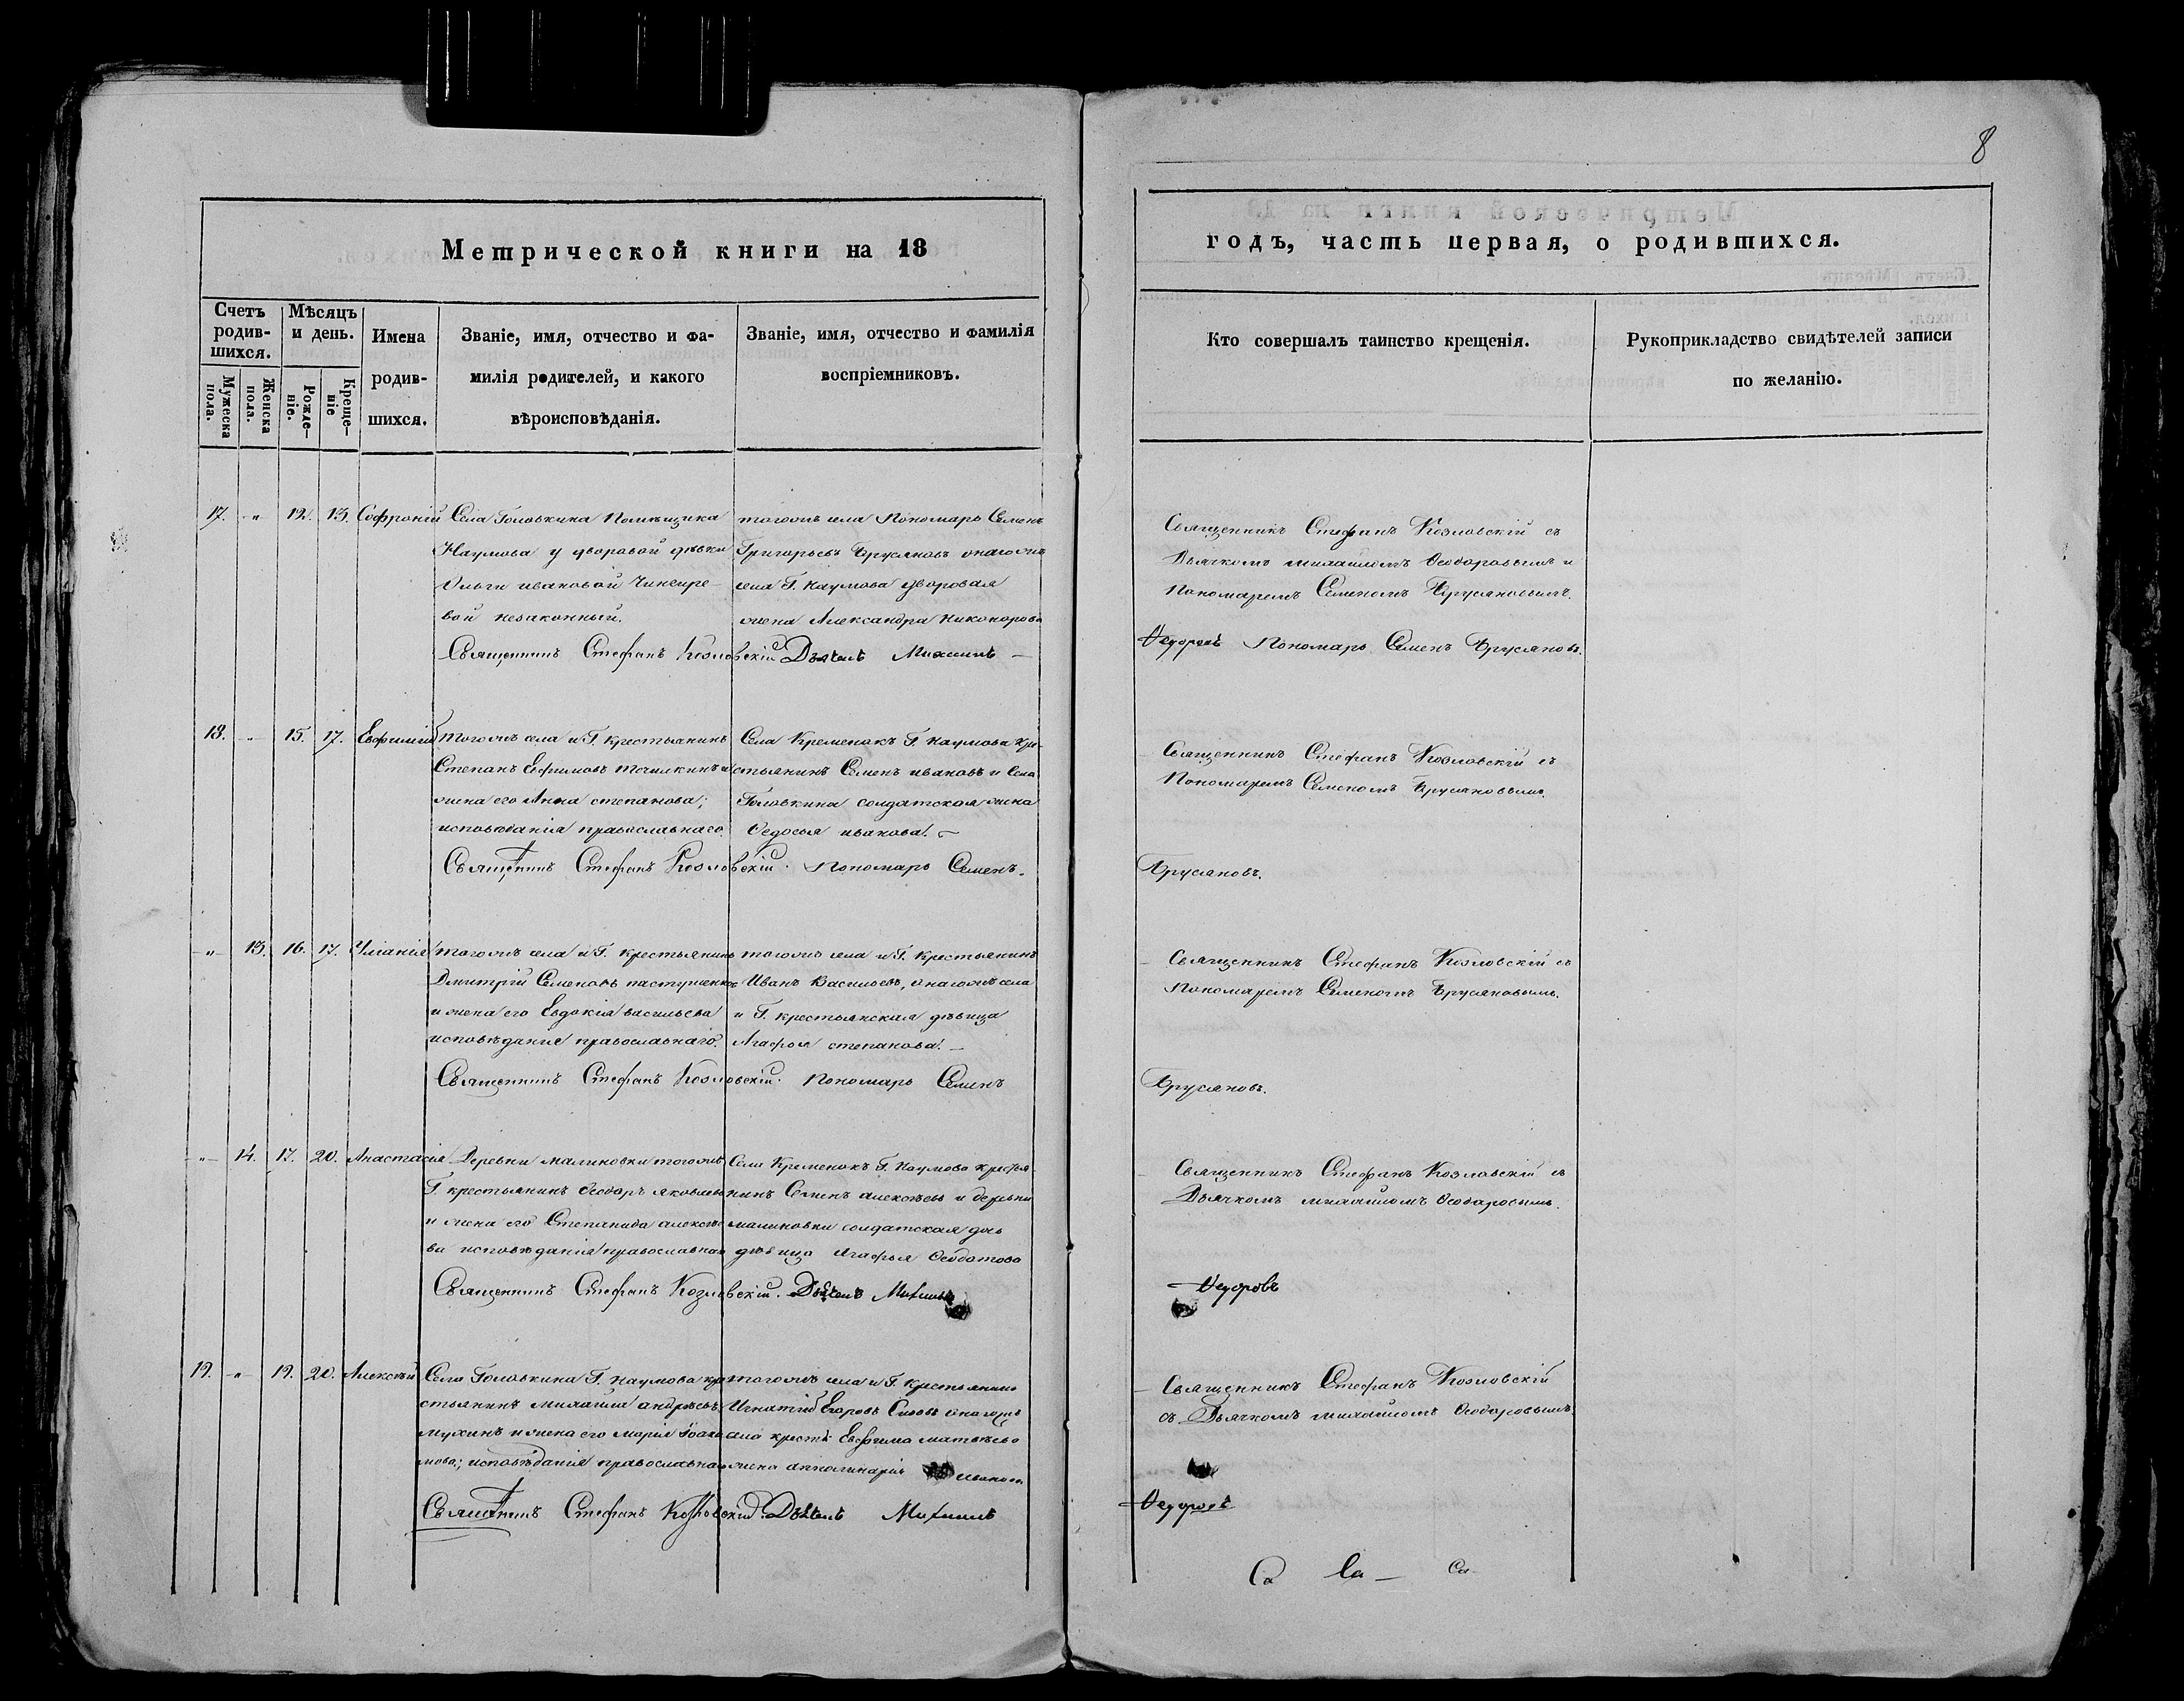 8
Метрической книги на 18
годъ, часть первая, о родившихся.
Счетъ родив-шихся.
Мѣсяцъ и день.
Имена родив-шихся.
Званіе, имя, отчество и фа-
милія родителей, и какого
вѣроисповѣданія.
Званіе, имя, отчество и фамилія
воспріемниковъ.
Кто совершалъ таинство крещенія.
Рукоприкладство свидѣтелей записи
по желанію.
Мужеска пола.
Женска пола.
Рожде-ніе.
Креще-ніе
17. „ 12. 13. Софроній
Села Головкина Помѣщика
Наумова у дворовой дѣвки
Ольги ивановой
вой незаконный.
тогожъ села Пономарь Семенъ
Григорьевъ Брусяновъ онагожъ
села Г. Наумова дворовая
жена Александра Никонорова
Священникъ Стефанъ Козловскій Дьячекъ Михаилъ
Священникъ Стефанъ Козловскій съ
Дьячкомъ михаиломъ Ѳеодоровымъ и
Пономаремъ Семеномъ Брусяновымъ.
Ѳедоровъ Пономарь Семенъ Брусяновъ.
18. „ 15. 17. Евфимій
тогожъ села и Г. крестьянинъ
Степанъ Ефимовъ Точилкинъ и
жена его Анна степанова;
исповѣданія православнаго.
Села Кременокъ Г. Наумова кре-
стьянинъ Семенъ ивановъ и Села
Головкина солдатская жена
Ѳедосья иванова.
Священникъ Стефанъ Козловскій. Пономарь Семенъ
Священникъ Стефанъ Козловскій съ
Пономаремъ Семеномъ Брусяновымъ.
Брусяновъ.
„ 13. 16. 17. Уліанія
тогожъ села и Г. крестьянинъ
Дмитрій Семеновъ
и жена его Евдокія васильева
исповѣданія православнаго.
тогожъ села и Г. крестьянинъ
Иванъ Васильевъ, онагожъ села
и Г. крестьянская дѣвица
Агафья степанова.
Священникъ Стефанъ Козловскій. Пономарь Семенъ
Священникъ Стефанъ Козловскій съ
Пономаремъ Семеномъ Брусяновымъ.
Брусяновъ.
„ 14. 17. 20. Анастасія
Деревни малиновки тогожъ
Г. крестьянинъ Ѳеодоръ яковлевъ
и жена его Степанида алексѣе
ва исповѣданія православнаго
Села Кременокъ Г. Наумова крестья-
нинъ Семенъ алексѣевъ и деревни
малиновки солдатская дочь
дѣвица Агафья Ѳеодотова
Священникъ Стефанъ Козловскій. Дьячекъ Михаилъ
Священникъ Стефанъ Козловскій съ
Дьячкомъ михаиломъ Ѳеодоровымъ.
Ѳедоровъ
19. „ 19. 20. Алексѣй
Села Головкина Г. Наумова кре
стьянинъ михаилъ андрѣевъ
мухинъ и жена его марія Іоаки
мова; исповѣданія православнаго
тогожъ села и Г. крестьянинъ
Игнатій Егоровъ онагожъ
села крест. Евфима матвѣева
жена Апполинарія
Священникъ Стефанъ Козловскій. Дьячекъ Михаилъ
Священникъ Стефанъ Козловскій
съ Дьячкомъ михаиломъ Ѳеодоровымъ.
Ѳедоровъ